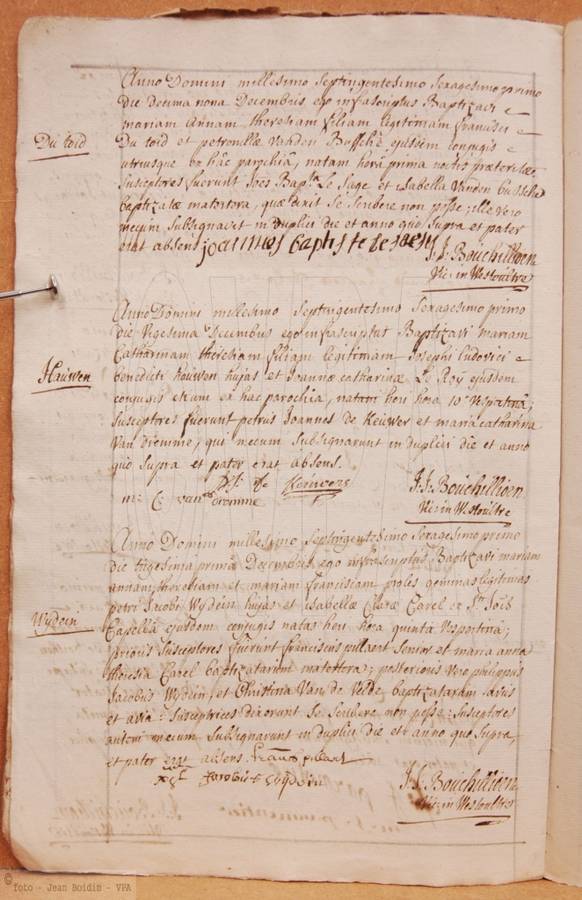 Anno Domini millesimo Septingentesimo Sexagesimo primo
die decima nona Decembris ego infrascriptus Baptizavi
mariam Annam theresiam filiam legitimam francisci
Du toid
Du toid et petronillæ vanden Bussche ejusdem conjugis
utriusque ex hac parochia, natam heri prima noctis præteritæ,
Susceptores fuerunt Joes Bap: Le Sage et isabella Vanden bussche
baptizatæ matertera, quæ dixit se scribere non posse; ille vero
mecum Subsignavit in duplici die et anno quo Supra et pater
erat absens joannes baptiste le saeg
J. J. Bouchillioen
Vic: in Westoutre
Anno Domini millesimo Septingentesimo Sexagesimo primo
die vigesima Decembris ego infrascriptus Baptizavi mariam
Catharinam theresiam filiam legitimam Josephi Ludovici
Hauwen
benedicti houwen hujas et Joannæ catharinæ Le Roÿ ejusdem
conjugis etiam ex hac parochia, natam heri hora 10 vespertina;
Susceptores fuerunt petrus Joannes de Heuwer et maria catharina
Van dromme, qui mecum Subsignarunt in duplici die et anno
quo Supra et pater erat absens.
de Heuwers
m: C: van dromme
J. J. Bouchillioen
Vic: in Westoutre
Anno Domini millesimo Septingentesimo Sexagesimo primo
die trigesima prima Decembris ego infrascriptus Baptizavi mariam
annam theresiam et mariam franciscam proles geminas legitimas
petri Jacobi Wÿdein hujas et isabellæ Claræ Carel ex St Jois
Wÿdein
Capella ejusdem conjugis natas heri hora quinta vespertina;
prioris Susceptores fuerunt franciscus pillaert Senior et maria anna
theresia Carel baptizatarum matertera; posterioris vero philippus
Jacobus Wÿdein, et Christina Van de Velde, baptizatarum
et avia: Susceptrices dixerunt Se Scribere non posse: Susceptores
autem mecum Subsignarunt in duplici die et anno quo Supra,
et pater erat absens. pillaert
Jacobus wÿdein
J. J. Bouchillioen
Vic: in Westoutre
© foto - Jean Boidin - VPA